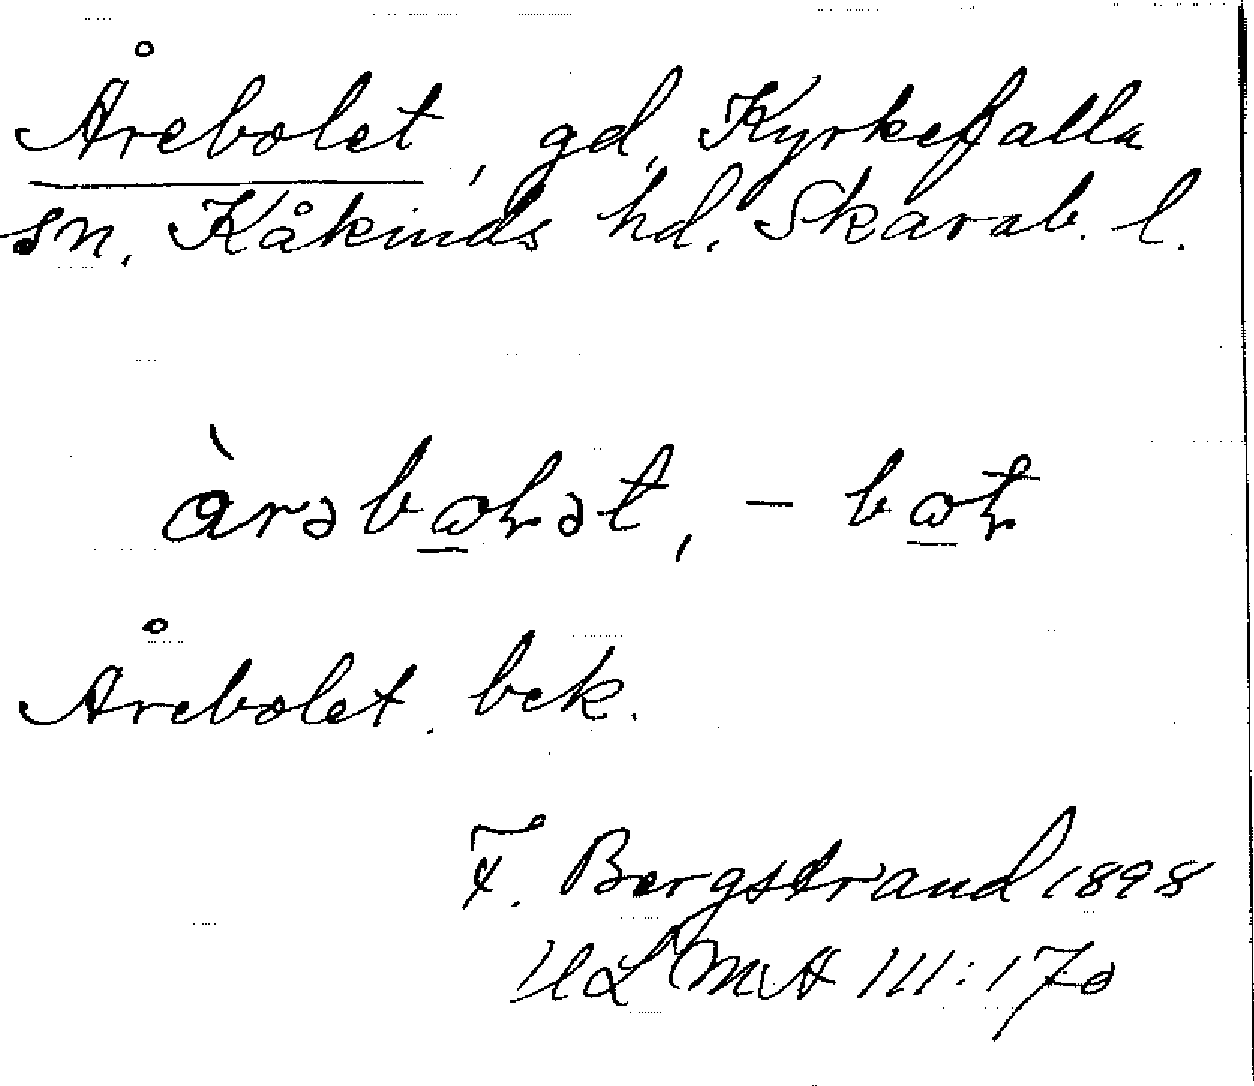 Årebolet, gd, Kyrkefalla
sn, Kåkinds hd. Skarab. l.
àrəbω̲ɫət, - bω̲ɫt
Årebolet. bek.
F. Bergstrand 1898
ULMA III: 17a